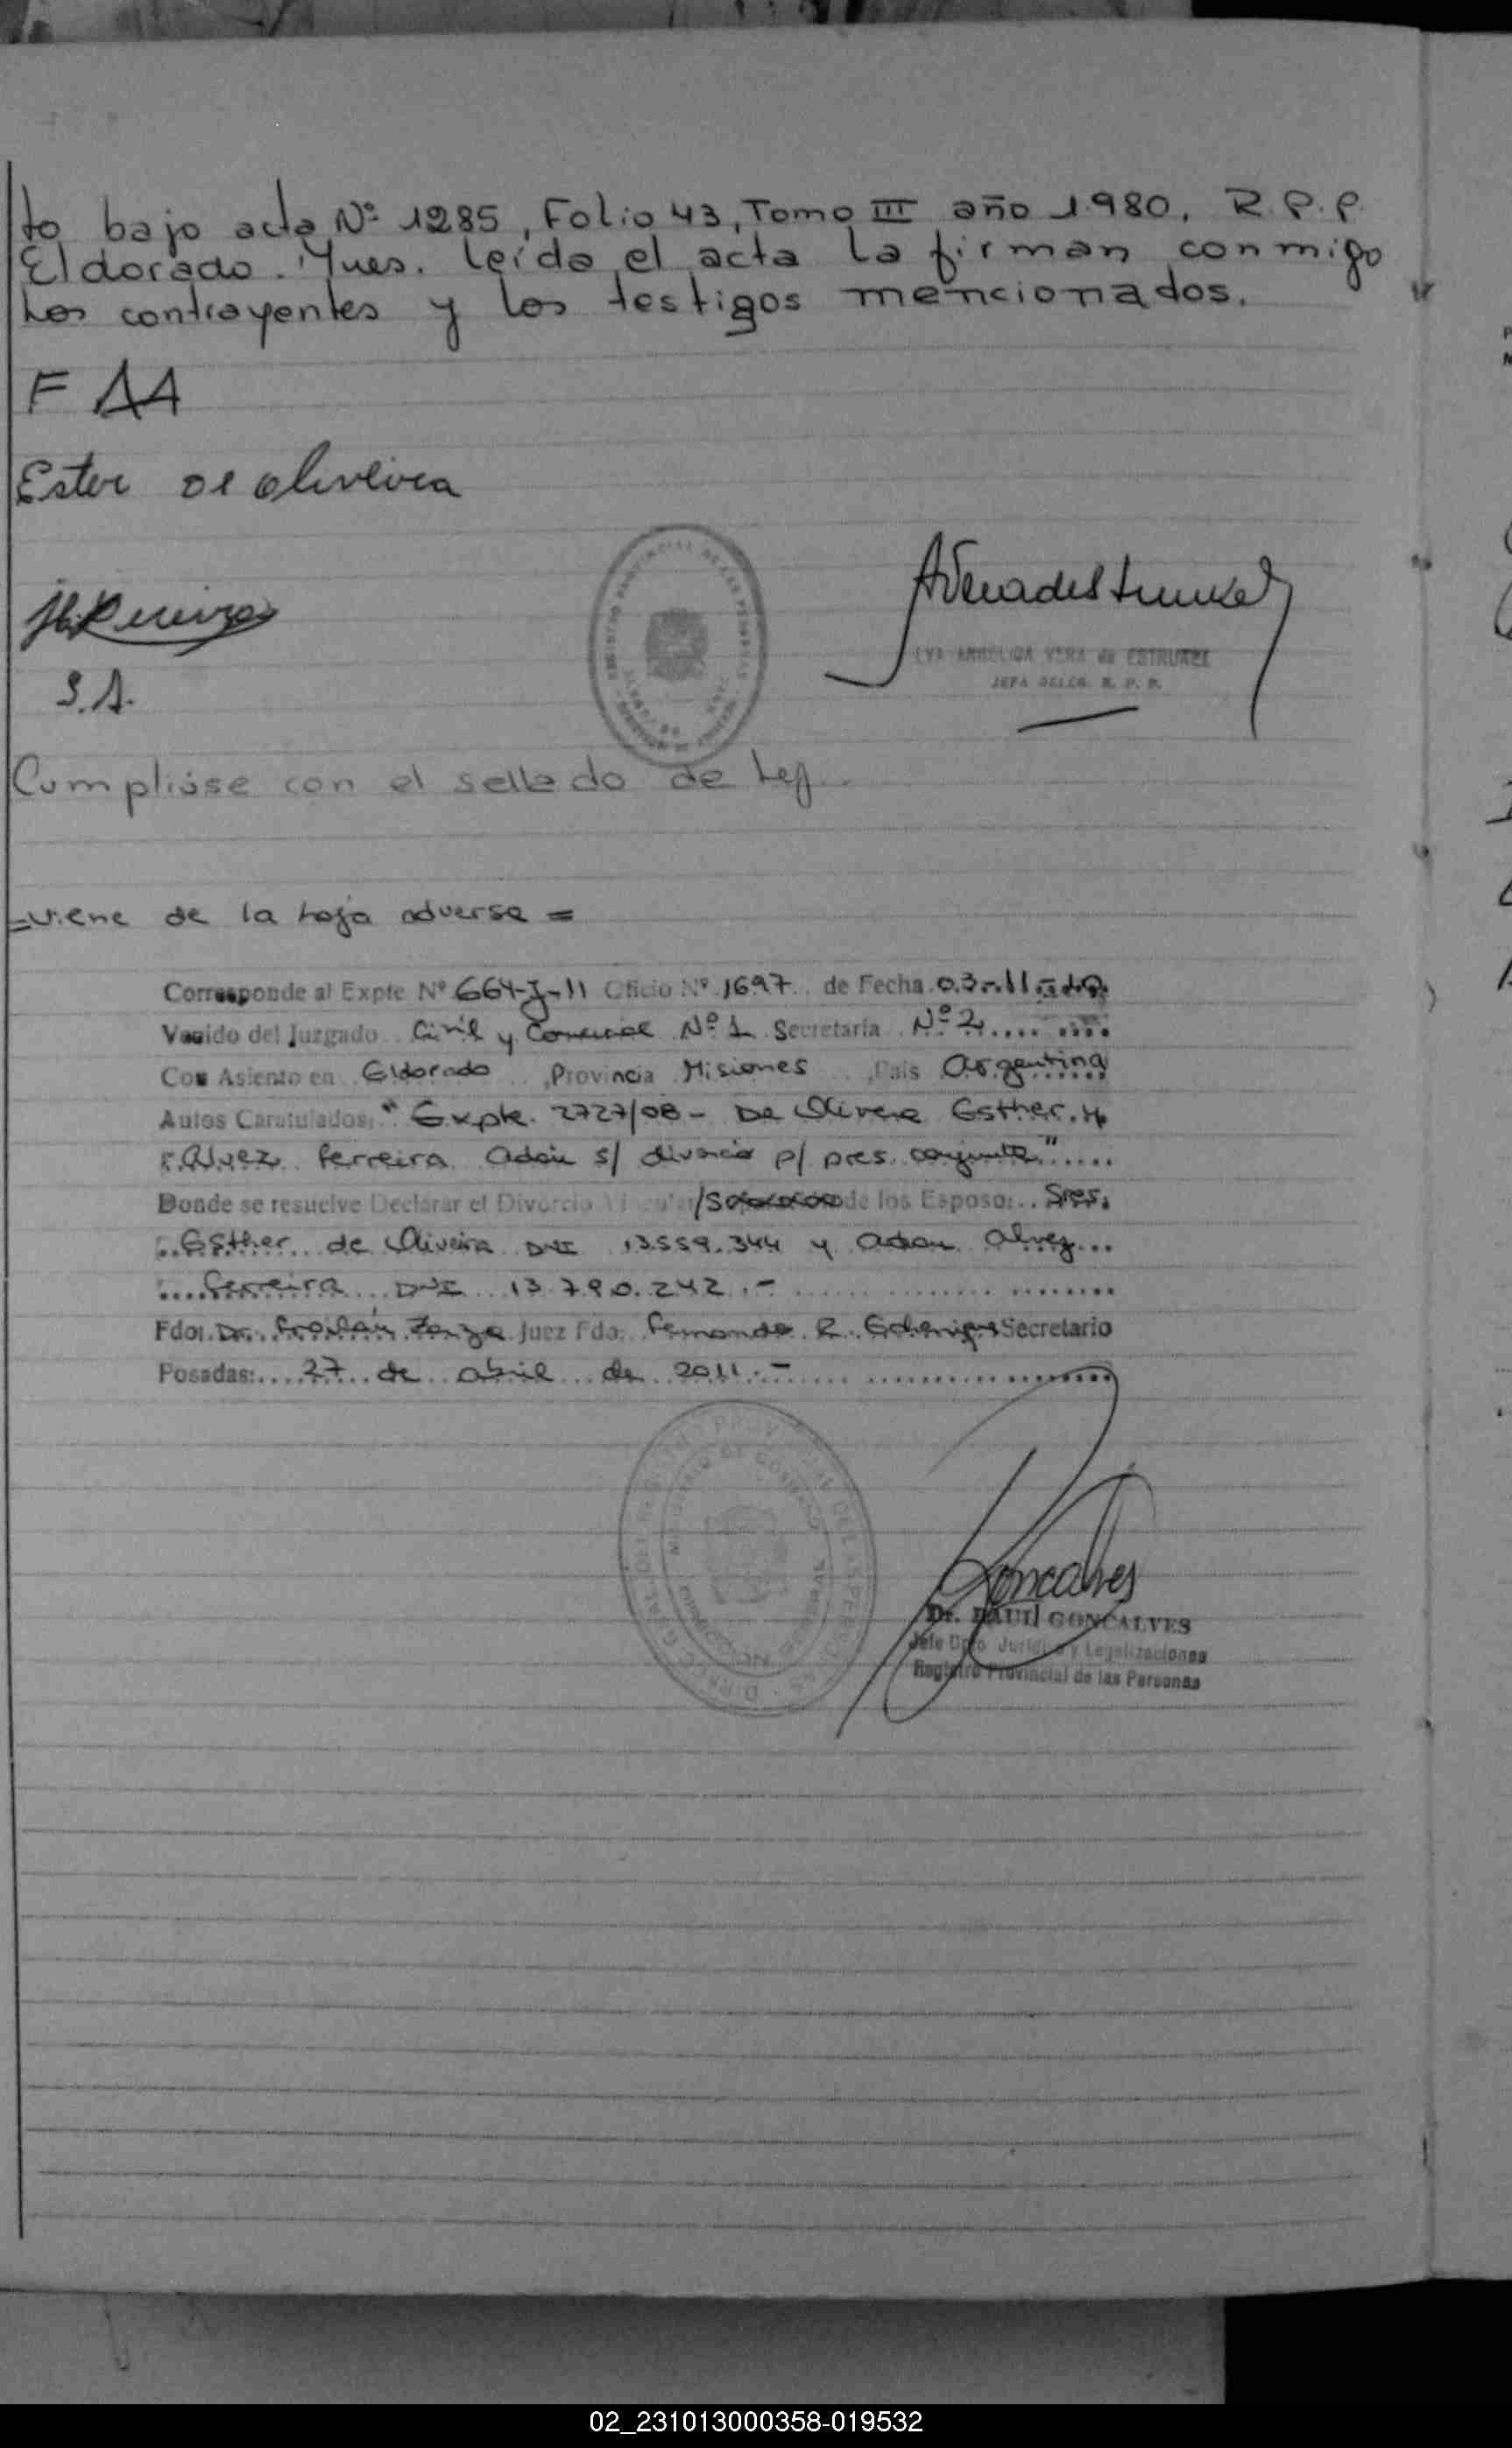 to bajo acta Nº 1285, Folio 43, Tomo III año 1.980, R.P.P.
Eldorado. Mnes. leída el acta la firman conmigo
los contrayentes y los testigos mencionados.
F AA
Ester de oliveira
S.A.
EVA ANGELICA VERA de ESTRUNKEL
JEFA DELEG. R. P. P.
Cumpliose con el sellado de Ley.
=viene de la hoja adversa =
Corresponde al Expte Nº 664-J-11 Oficio Nº 1697 de Fecha 03-11-10
Venido del Juzgado Civil y Comercial Nº 1 Secretaría Nº 2
Con Asiento en Eldorado, Provincia Misiones, País Argentina
Autos Caratulados: "Expte. 2727/08 - De Olivera Esther. y
Alvez Ferreira Adán s/ divorcio p/ pres. conjunta"
Donde se resuelve Declarar el Divorcio Vincular/ de los Esposo: Sres.
Esther de Oliveira DNI 13.559.344 y Adan Alvez
Ferreira DNI 13.790.242.-
Fdo: Dr. Froilán Juez Fdo: Fernando R. Secretario
Posadas: 27 de abril de 2011.-
Goncalves
Dr. RAUL GONCALVES
Jefe Dpto Jurídico y Legalizaciones
Registro Provincial de las Personas
02_231013000358-019532